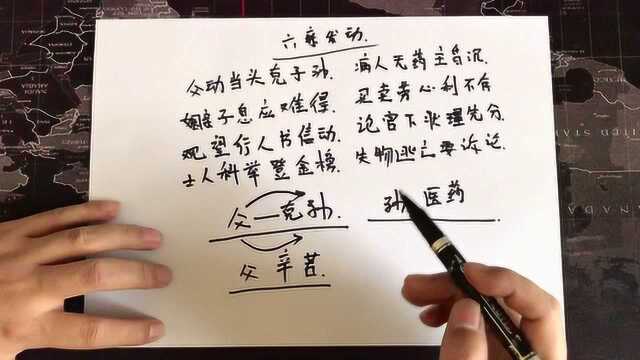 六亲发动.
父动当头克子孙. 病人无药主昏沉.
姻亲子息应难得. 买卖劳心利不存
观望行人书信动. 论官下状理先分
士人科举登金榜. 失物逃亡要诉论.
父—克孙.
孙 医药
父 辛苦.